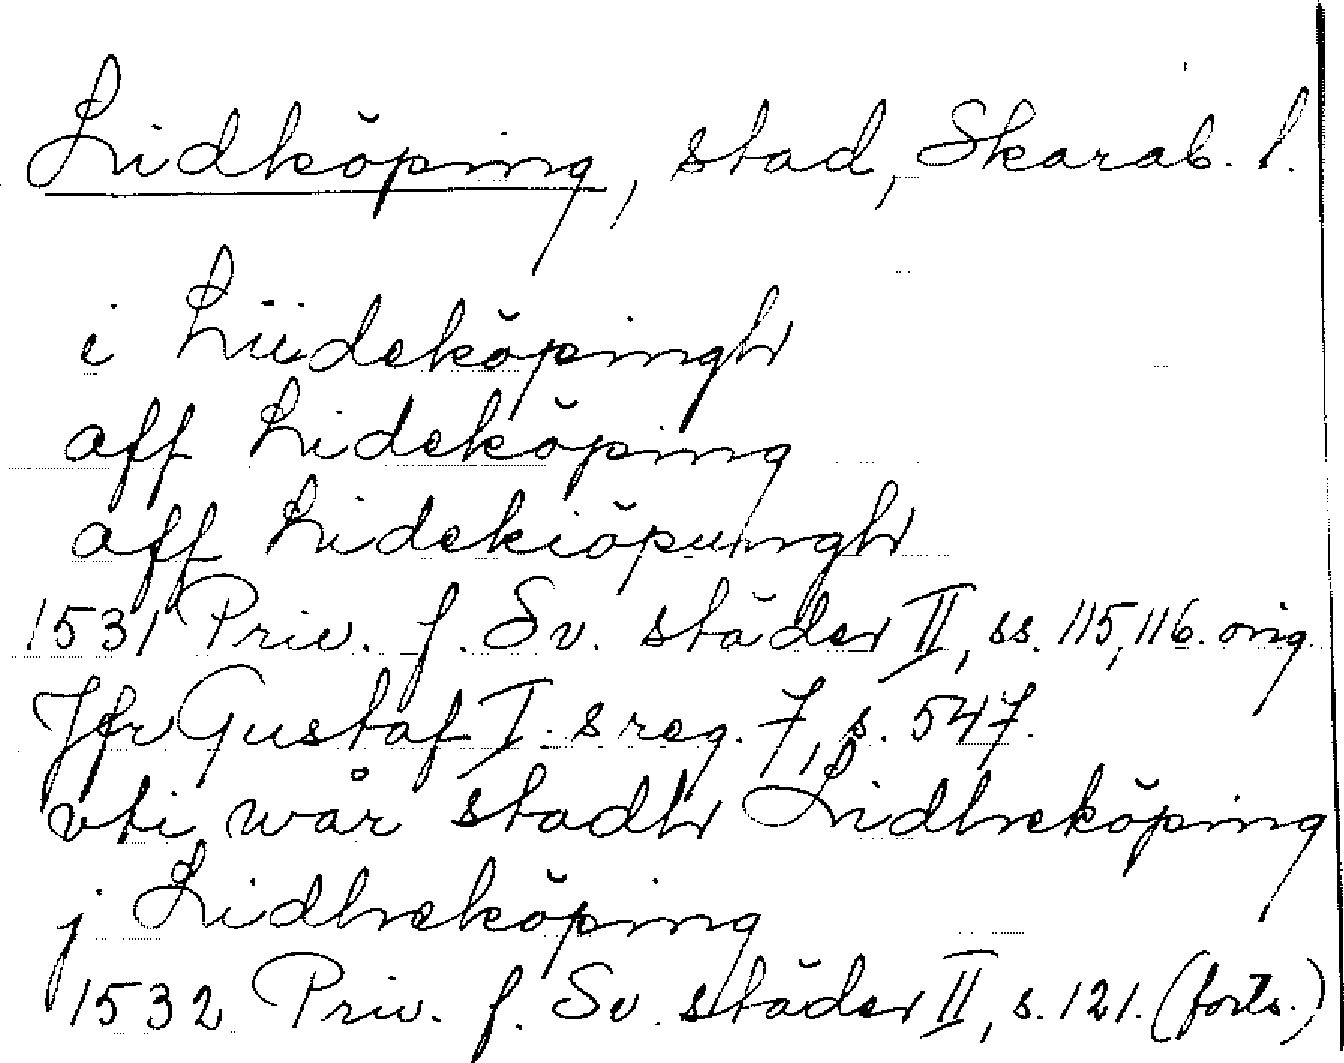 Lidköping, stad, Skarab. l.
i Liideköpingh
aff Lideköping
aff Lidekiöpungh
1531 Priv. f. Sv. städer II, ss. 115, 116. orig.
Jfr Gustaf I. s reg. 7, s. 547.
vti wår stadh Lidheköping
j Lidheköping
1532 Priv. f. Sv. städer II, s. 121. (forts.)